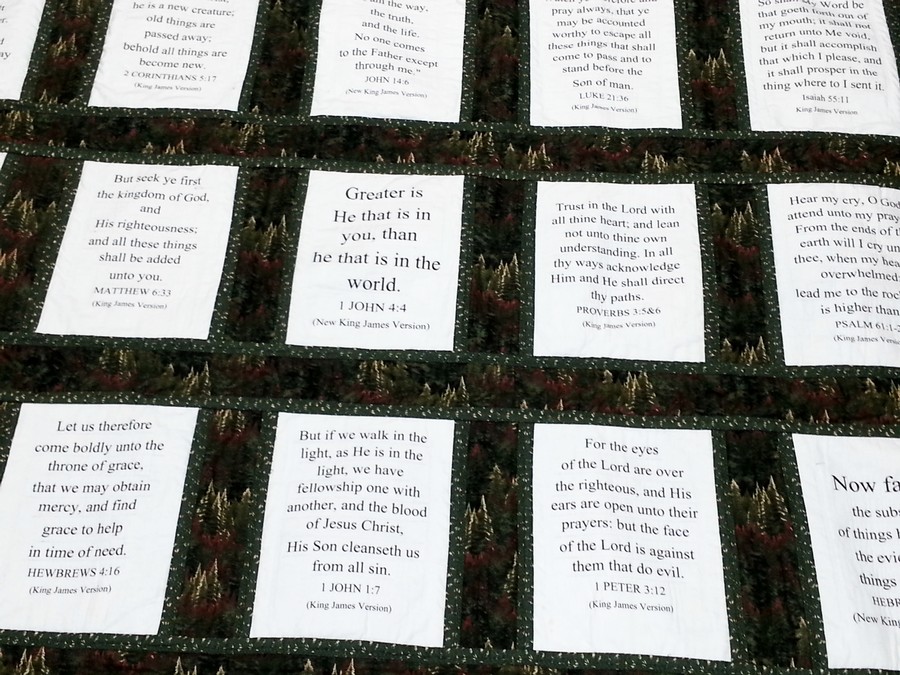 he is a new creature;
old things are
passed away;
behold all things are
become new.
2 CORINTHIANS 5:17
(King James Version)
am the way,
the truth,
and the life.
No one comes
to the Father except
through me."
JOHN 14:6
(New King James Version)
pray always, that ye
may be accounted
worthy to escape all
these things that shall
come to pass and to
stand before the
Son of man.
LUKE 21:36
(King James Version)
So shall My Word be
that goeth forth out of
my mouth; it shall not
return unto Me void,
but it shall accomplish
that which I please, and
it shall prosper in the
thing where to I sent it.
Isaiah 55:11
King James Version
But seek ye first
the kingdom of God,
and
His righteousness;
and all these things
shall be added
unto you.
MATTHEW 6:33
(King James Version)
Greater is
He that is in
you, than
he that is in the
world.
1 JOHN 4:4
(New King James Version)
Trust in the Lord with
all thine heart; and lean
not unto thine own
understanding. In all
thy ways acknowledge
Him and He shall direct
thy paths.
PROVERBS 3:5&6
(King James Version)
Hear my cry, O God
attend unto my pray
From the ends of th
earth will I cry un
thee, when my hea
overwhelmed:
lead me to the roc
is higher than
PSALM 61:1-2
(King James Ver
Let us therefore
come boldly unto the
throne of grace,
that we may obtain
mercy, and find
grace to help
in time of need.
HEWBREWS 4:16
(King James Version)
But if we walk in the
light, as He is in the
light, we have
fellowship one with
another, and the blood
of Jesus Christ,
His Son cleanseth us
from all sin.
1 JOHN 1:7
(King James Version)
For the eyes
of the Lord are over
the righteous, and His
ears are open unto their
prayers: but the face
of the Lord is against
them that do evil.
1 PETER 3:12
(King James Version)
Now fa
the subs
of things h
the evid
things
HEBR
(New King